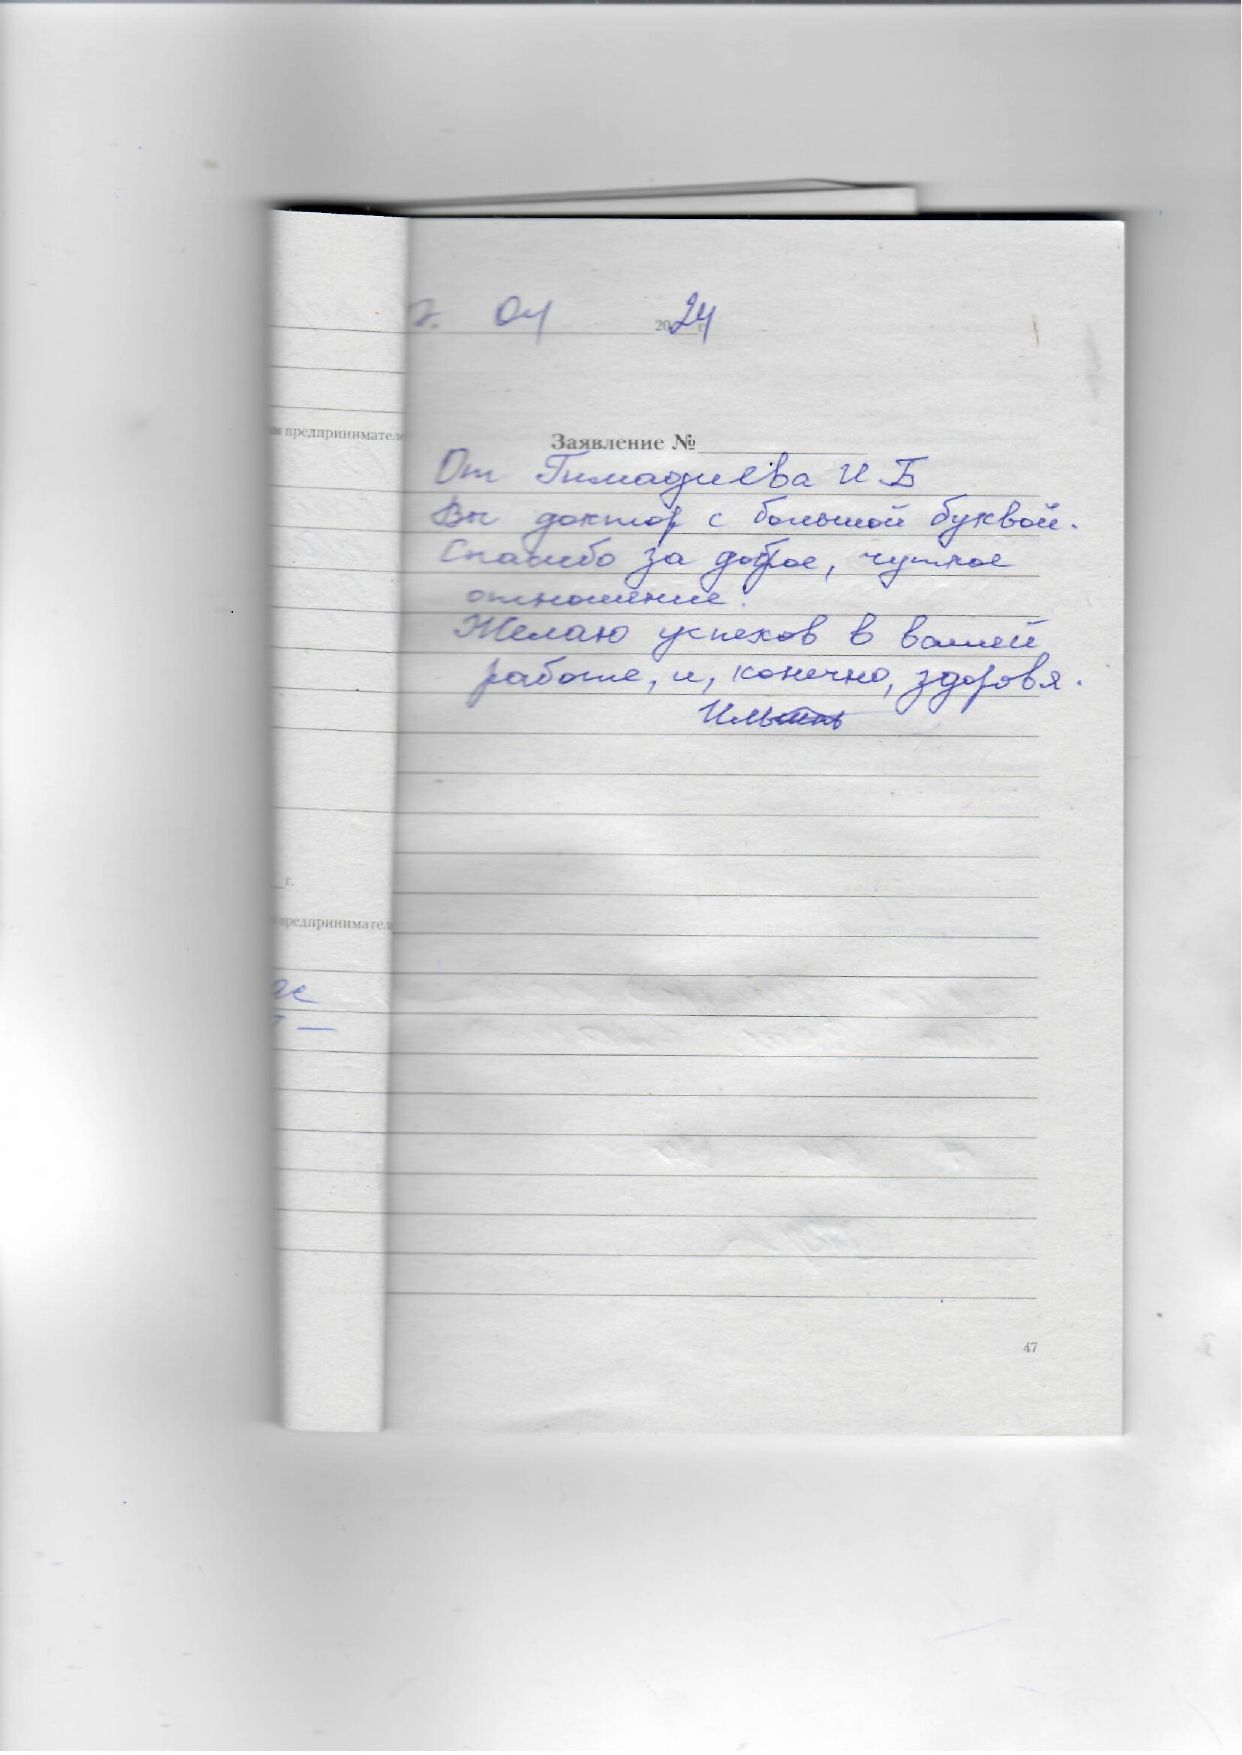 04 2024 г.
м предпринимател
Заявление №
От Гимадиева И Б
Вы доктор с большой буквой.
Спасибо за доброе, чуткое
отношение.
Желаю успехов в вашей
работе, и, конечно, здоровья.
г.
предпринимател
47